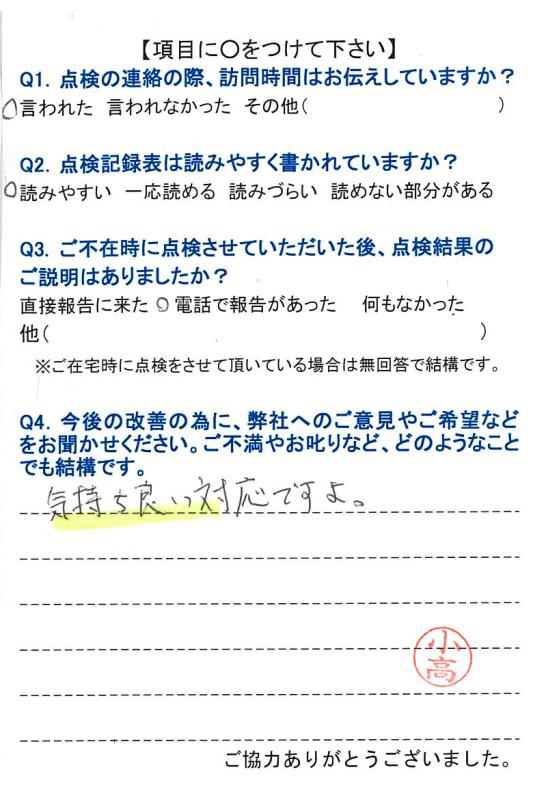 【項目に〇をつけて下さい】
Q1. 点検の連絡の際、訪問時間はお伝えしていますか？
〇言われた 言われなかった その他(　　　　　　　　)
Q2. 点検記録表は読みやすく書かれていますか？
〇読みやすい 一応読める 読みづらい 読めない部分がある
Q3. ご不在時に点検させていただいた後、点検結果の
ご説明はありましたか？
直接報告に来た 〇電話で報告があった 何もなかった
他(　　　　　　　　)
※ご在宅時に点検をさせて頂いている場合は無回答で結構です。
Q4. 今後の改善の為に、弊社へのご意見やご希望など
をお聞かせください。ご不満やお叱りなど、どのようなこと
でも結構です。
気持ち良い対応ですよ。
小高
ご協力ありがとうございました。